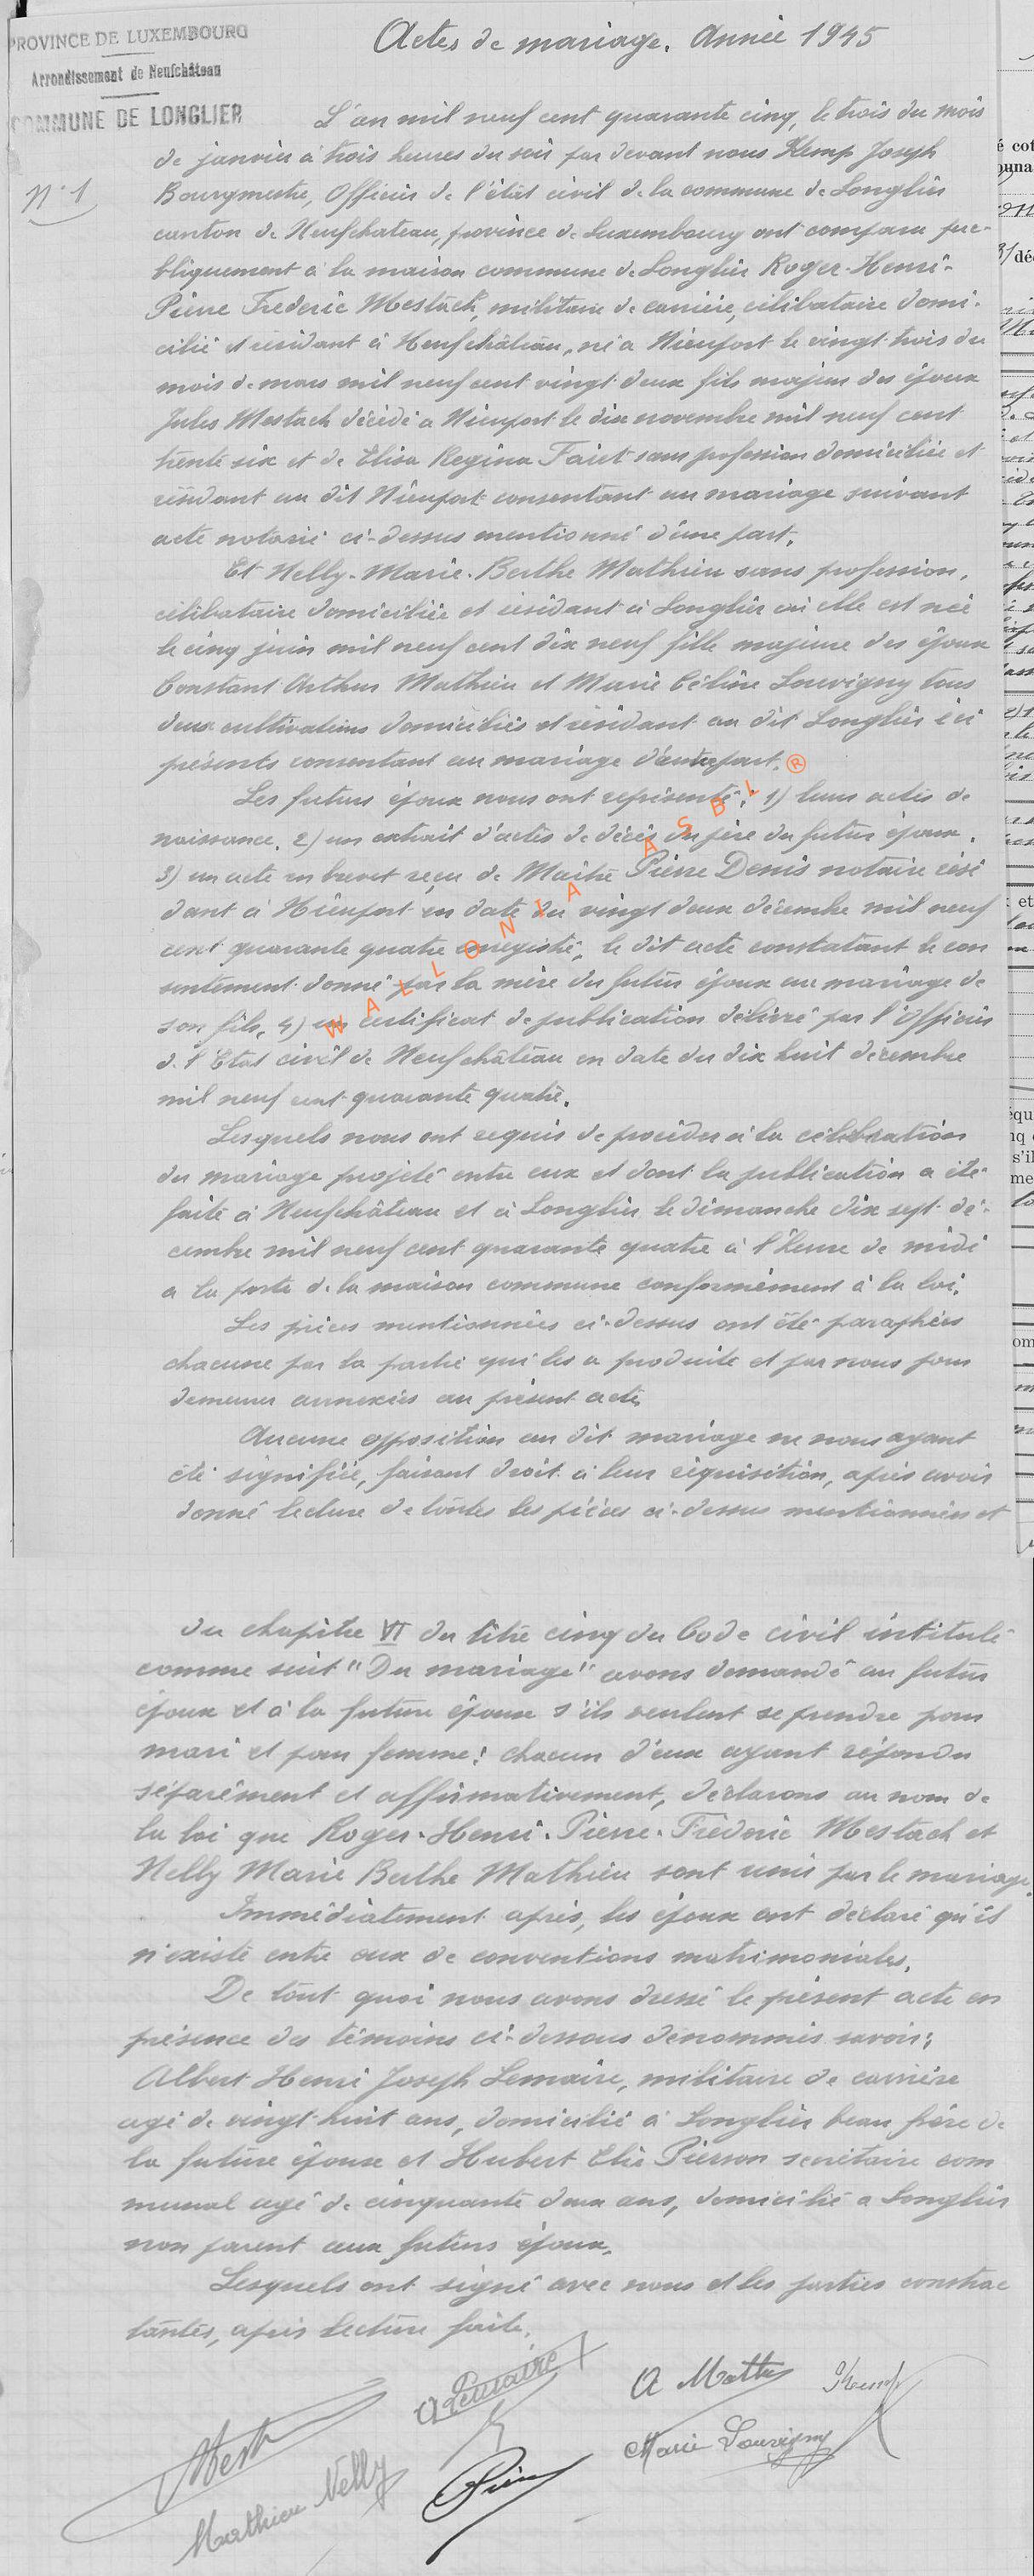 PROVINCE DE LUXEMBOURG
Arrondissement de Neufchâteau
COMMUNE DE LONGLIER
Actes de mariage. Année 1945
N° 1
L'an mil neuf cent quarante cinq, le trois du mois
de janvier à trois heures du soir par devant nous Kemp Joseph
Bourgmestre, Officier de l'état civil de la commune de Longlier
canton de Neufchateau, province de Luxembourg ont comparu pu-
bliquement à la maison commune de Longlier Roger-Henri-
Pierre Frederic Mestach, militaire de carrière, célibataire domi-
cilié et résidant à Neufchâteau, né a Nieuport le vingt trois du
mois de mars mil neuf cent vingt deux fils majeur des époux
Jules Mestach décédé a Nieuport le dix novembre mil neuf cent
trente six et de Elisa Regina Faict sans profession domiciliée et
résidant au dit Nieuport consentant au mariage suivant
acte notarié ci-dessus mentionné d'une part.
Et Nelly-Marie-Berthe Mathieu sans profession,
célibataire domiciliée et résidant à Longlier où elle est née
le cinq juin mil neuf cent dix neuf fille majeure des époux
Constant Arthur Mathieu et Marie Céline Louvigny tous
deux cultivateurs domiciliés et résidant au dit Longlier ici
présents consentant au mariage d'autre part.
Les futurs époux nous ont représenté: 1) leurs actes de
naissance. 2) un extrait d'actes de décès du père du futur époux.
3) un acte en brevet reçu de Maître Pierre Denis notaire rési
dant à Nieuport en date du vingt deux décembre mil neuf
cent quarante quatre enregistré, le dit acte constatant le con
sentement donné par la mère du futur époux au mariage de
son fils, 4) un certificat de publication délivré par l'Officier
de l'Etat civil de Neufchâteau en date du dix huit décembre
mil neuf cent quarante quatre.
Lesquels nous ont requis de procéder à la célébration
du mariage projeté entre eux et dont la publication a été
faite à Neufchâteau et à Longlier le dimanche dix sept dé-
cembre mil neuf cent quarante quatre à l'heure de midi
a la porte de la maison commune conformément à la loi.
Les pièces mentionnées ci-dessus ont été paraphées
chacune par la partie qui les a produite et par nous pour
demeurer annexées au présent acte.
Aucune opposition au dit mariage ne nous ayant
été signifiée, faisant droit à leur réquisition, après avoir
donné lecture de toutes les pièces ci-dessus mentionnées et
du chapitre VI du titre cinq du Code civil intitulé
comme suit "Du mariage" avons demandé au futur
époux et à la future épouse s'ils veulent se prendre pour
mari et pour femme: chacun d'eux ayant répondu
séparément et affirmativement, déclarons au nom de
la loi que Roger-Henri-Pierre-Fréderic Mestach et
Nelly Marie Berthe Mathieu sont unis par le mariage.
Immédiatement après, les époux ont déclaré qu'il
n'existe entre eux de conventions matrimoniales.
De tout quoi nous avons dressé le présent acte en
présence des témoins ci-dessous dénommés savoir:
Albert Henri Joseph Lemaire, militaire de carrière
agé de vingt huit ans, domicilié à Longlier beau frère de
la future épouse et Hubert Elie Pierson secrétaire com
munal agé de cinquante deux ans, domicilié a Longlier
non parent aux futurs époux.
Lesquels ont signé avec nous et les parties contrac
tantes, après lecture faite.
A Lemaire
A Mathieu
Kemp
Mest
Marie Louvigny
Mathieu Nelly
WALLONIA ASBL ®